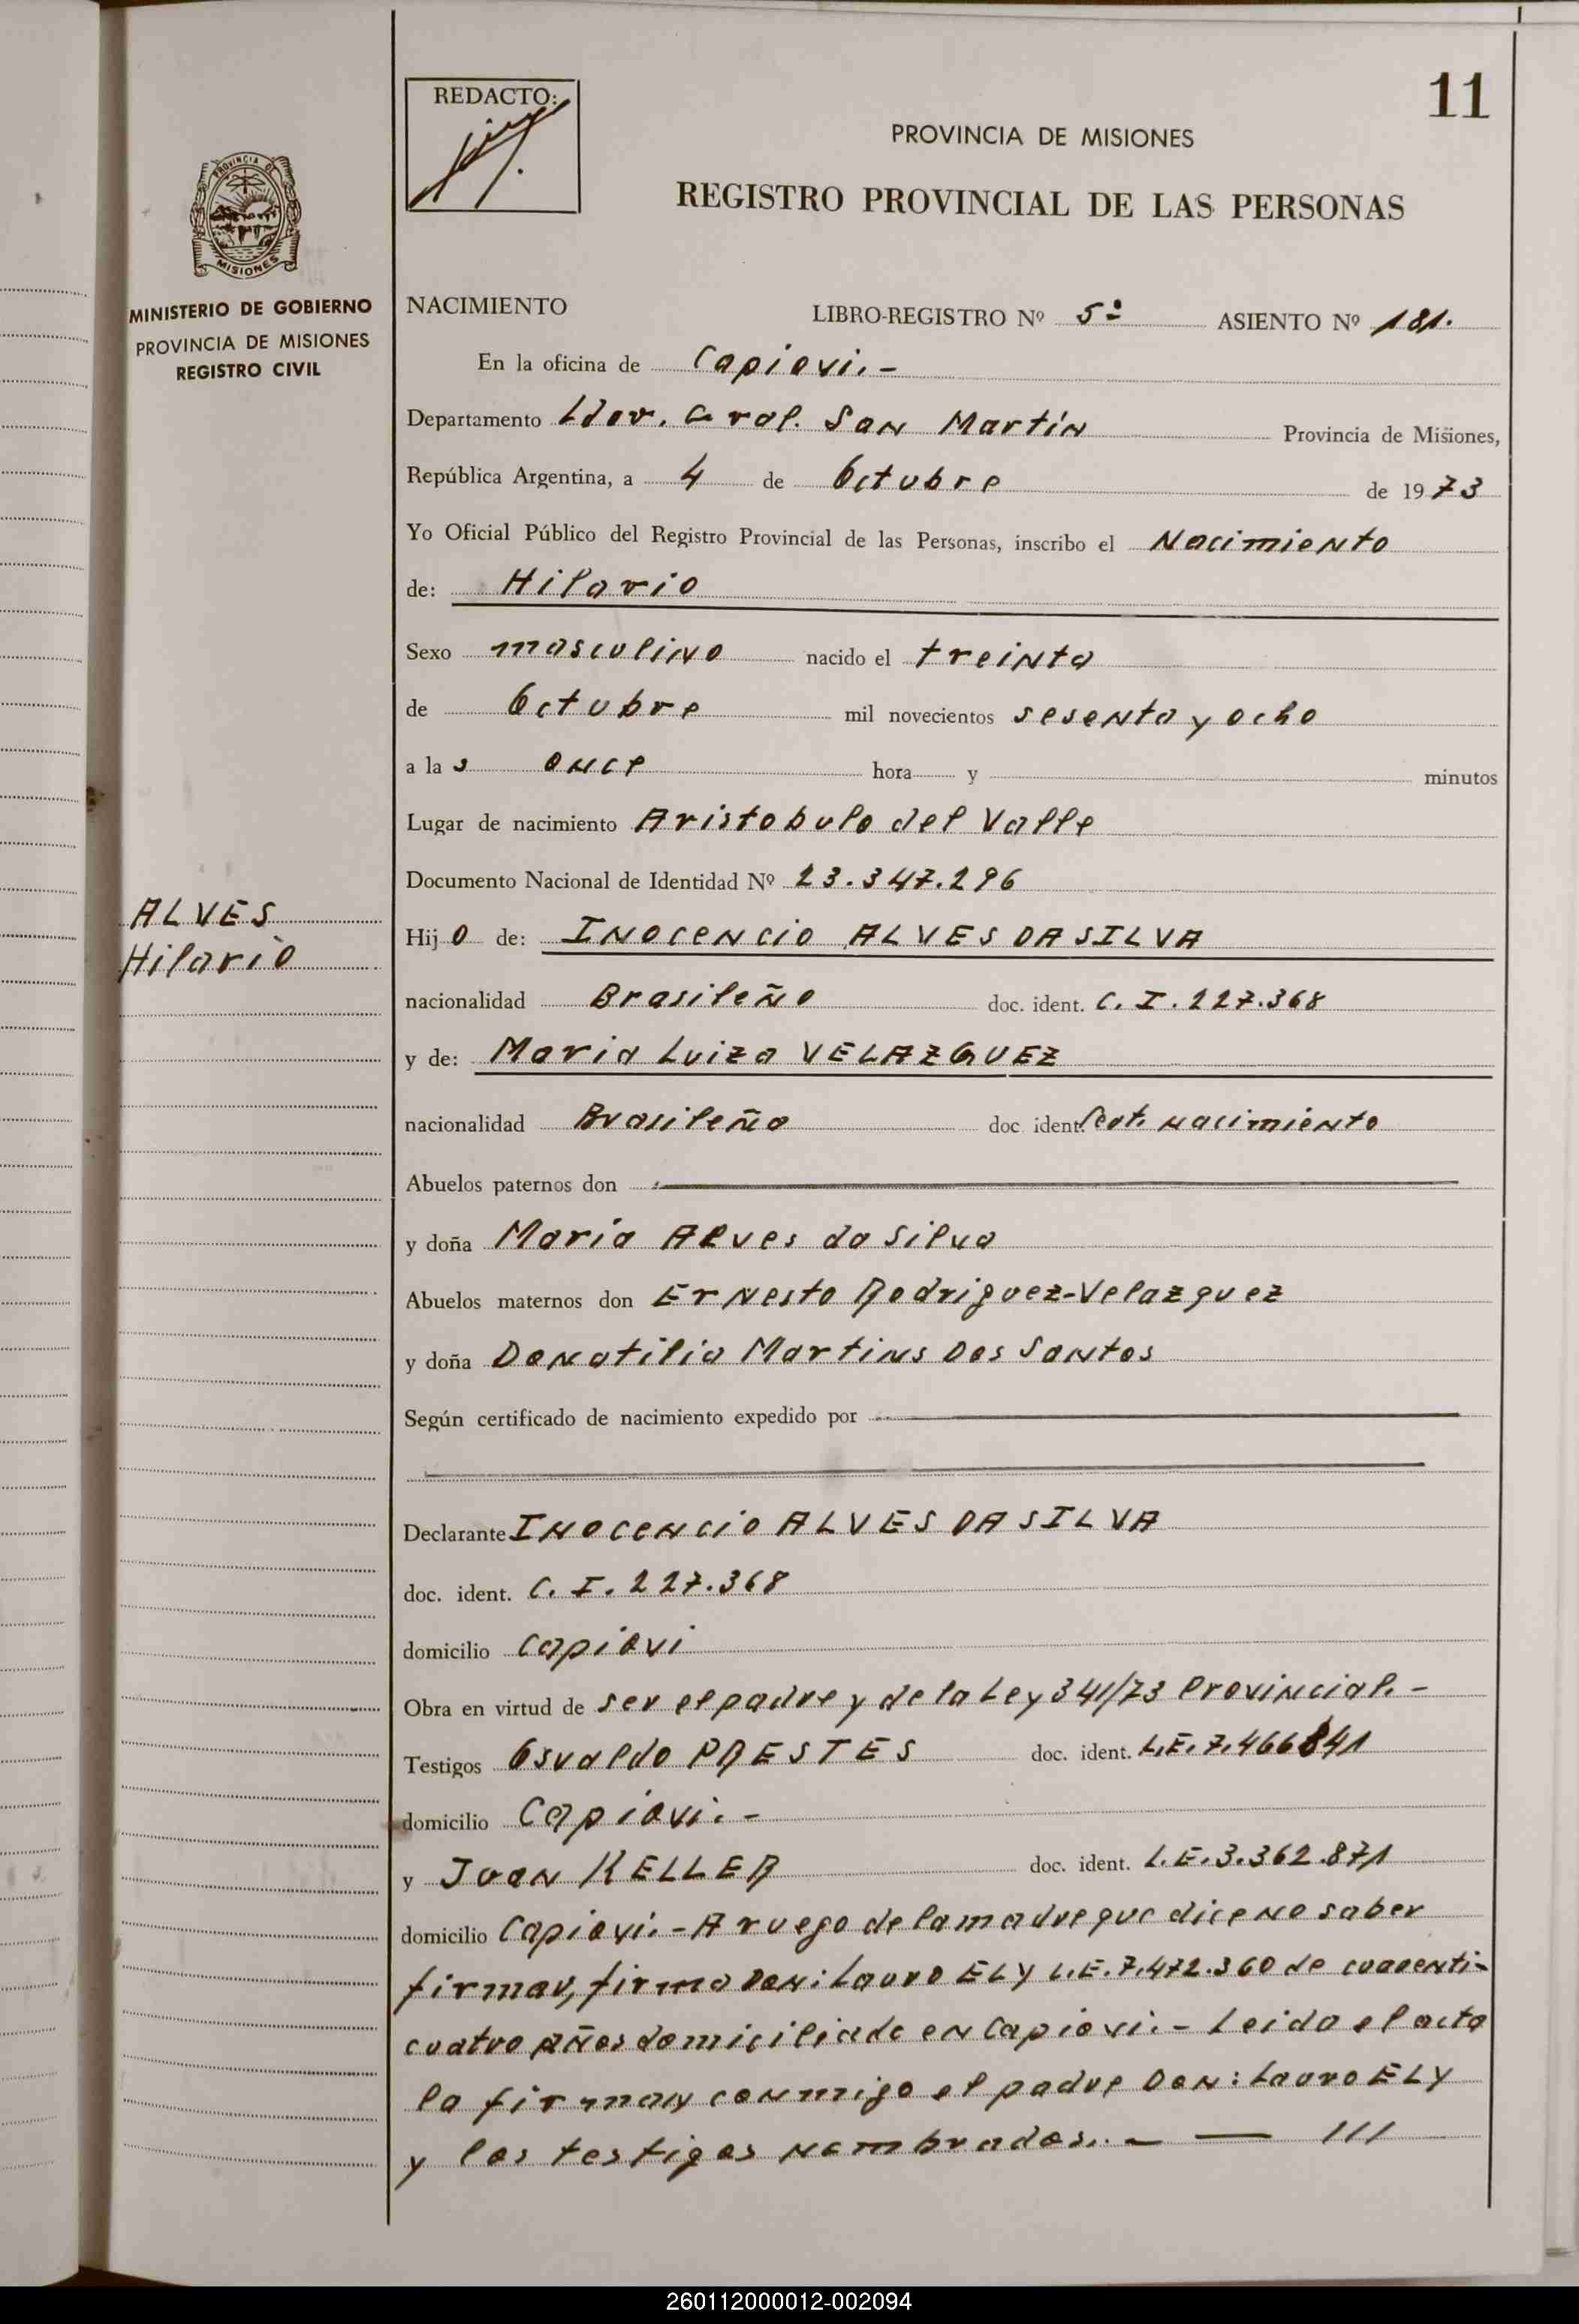 11
REDACTO:
PROVINCIA DE MISIONES
REGISTRO PROVINCIAL DE LAS PERSONAS
PROVINCIA DE
MISIONES
MINISTERIO DE GOBIERNO
PROVINCIA DE MISIONES
REGISTRO CIVIL
NACIMIENTO LIBRO-REGISTRO Nº 5º ASIENTO Nº 181.
En la oficina de Capiovi.-
Departamento Ldor. Gral. San Martín Provincia de Misiones,
República Argentina, a 4 de Octubre de 1973
Yo Oficial Público del Registro Provincial de las Personas, inscribo el Nacimiento
de: Hilario
Sexo masculino nacido el treinta
de Octubre mil novecientos sesenta y ocho
a la s once hora y minutos
Lugar de nacimiento Aristobulo del Valle
Documento Nacional de Identidad Nº 23.347.296
ALVES
Hilario
Hij o de: Inocencio ALVES DA SILVA
nacionalidad Brasileño doc. ident. C. I. 227.368
y de: Maria Luiza VELAZQUEZ
nacionalidad Brasileña doc. ident. nacimiento
Abuelos paternos don
y doña María Alves da Silva
Abuelos maternos don Ernesto Rodriguez-Velazquez
y doña Donatilia Martins Dos Santos
Según certificado de nacimiento expedido por
Declarante Inocencio ALVES DA SILVA
doc. ident. C. I. 227.368
domicilio Capiovi
Obra en virtud de ser el padre y de la Ley 341/73 Provincial.-
Testigos Osvaldo PRESTES doc. ident. L.E. 7.466841
domicilio Capiovi.-
y Juan KELLER doc. ident. L.E. 3.362.871
domicilio Capiovi.- A ruego de la madre que dice no saber
firmar, firma Don: Lauro ELY L.E. 7.472.360 de cuarenti-
cuatro años domiciliado en Capiovi.- Leida el acta
la firman conmigo el padre Don: Lauro ELY
y los testigos nombrados.- — ///
260112000012-002094